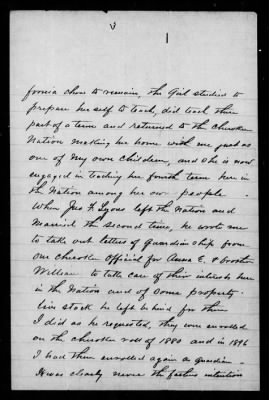 fornia chose to remain, the Girl studied to
prepare herself to teach, did teach there
part of a term and returned to the Cherokee
Nation making her home with me just as
one of my own children, and she is now
engaged in teaching her fourth term here in
the Nation among her own people.
When Jno F. Lyons left the Nation and
Married the second time, he wrote me
to take out letters of Guardianship from
our Cherokee Official for Anna E. &
William to take care of their interests here
in the Nation and of some property.
live stock he left behind for them
I did as he requested, they were enrolled
on the Cherokee roll of 1880 and in 1896
I had them enrolled again as guardian.
It was clearly never the fathers intention